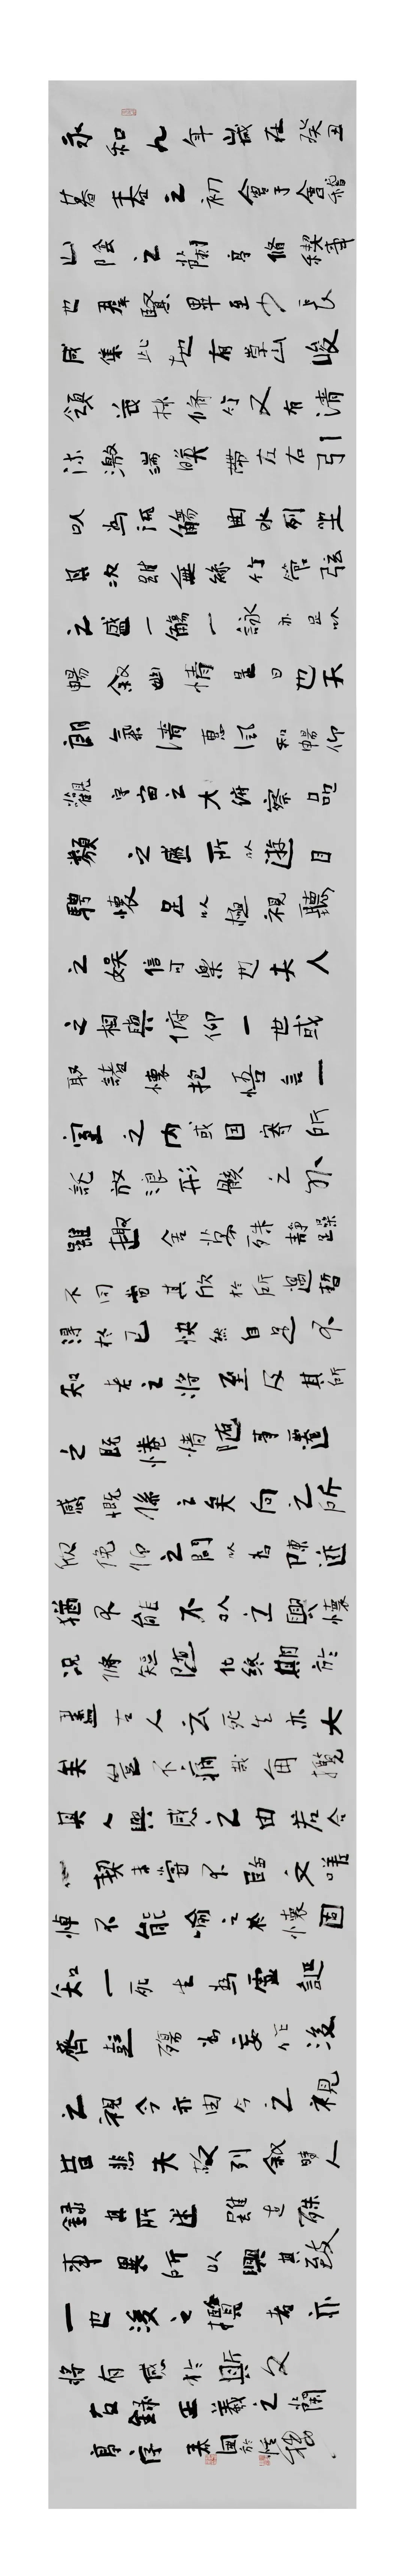 永和九年歲在癸丑
暮春之初會于會稽
山陰之蘭亭脩稧事
也羣賢畢至少長
咸集此地有崇山峻
領茂林脩竹又有清
流激湍暎帶左右引
以為流觴曲水列坐
其次雖無絲竹管弦
之盛一觴一詠亦足以
暢叙幽情是日也天
朗氣清惠風和暢仰
觀宇宙之大俯察品
類之盛所以遊目
騁懷足以極視聽
之娛信可樂也夫人
之相與俯仰一世或
取諸懷抱悟言一
室之内或因寄所
託放浪形骸之外
雖趣舍萬殊靜躁
不同當其欣於所遇暫
得於己快然自足不
知老之將至及其所
之既惓情隨事遷
感慨係之矣向之所
欣俛仰之間以為陳迹
猶不能不以之興懷
況脩短隨化終期於
盡古人云死生亦大
矣豈不痛哉每攬
昔人興感之由若合
一契未嘗不臨文嗟
悼不能喻之於懷固
知一死生為虛誕
齊彭殤為妄作後
之視今亦由今之視
昔悲夫故列叙時人
錄其所述雖世殊
事異所以興其致
一也後之攬者亦
將有感於斯文
右錄王羲之蘭
亭序